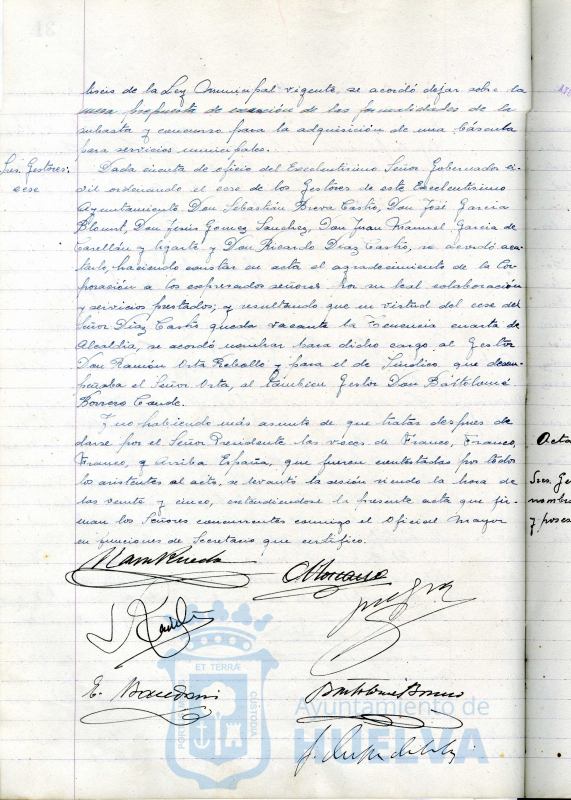 tiseis de la Ley Municipal vigente, se acordó dejar sobre la
mesa propuesta de exención de las formalidades de la
subasta y concurso para la adquisición de una báscula
para servicios municipales.
Sres. Gestores:
cese
Dada cuenta de oficio del Excelentísimo Señor Gobernador ci-
vil ordenando el cese de los Gestores de este Excelentísimo
Ayuntamiento Don Sebastián Brera Castro, Don José García
Blount, Don Jesús Gomez Sanchez, Don Juan Manuel García de
Carellán y Ugarte y Don Ricardo Díaz Castro, se acordó aca-
tarlo, haciendo constar en acta el agradecimiento de la Cor-
poración a los expresados señores por su leal colaboración
y servicios prestados; y resultando que en virtud del cese del
Señor Díaz Castro queda vacante la Tenencia cuarta de
Alcaldía, se acordó nombrar para dicho cargo al Gestor
Don Ramón Orta Rebollo y para el de Síndico que desem-
peñaba el Señor Orta, al también Gestor Don Bartolomé
Borrero Conde.
Y no habiendo más asuntos de que tratar después de
darse por el Señor Presidente las voces de Franco, Franco,
Franco, y Arriba España, que fueron contestadas por todos
los asistentes al acto, se levantó la sesión siendo la hora de
las veinte y cinco, extendiéndose la presente acta que fir-
man los Señores concurrentes conmigo el Oficial Mayor
en funciones de Secretario que certifico.
Bartolomé Borrero
Acta
Sres. Ge
nombr
y poses
PORTUS
ET TERRÆ
CUSTODIA
Ayuntamiento de
HUELVA